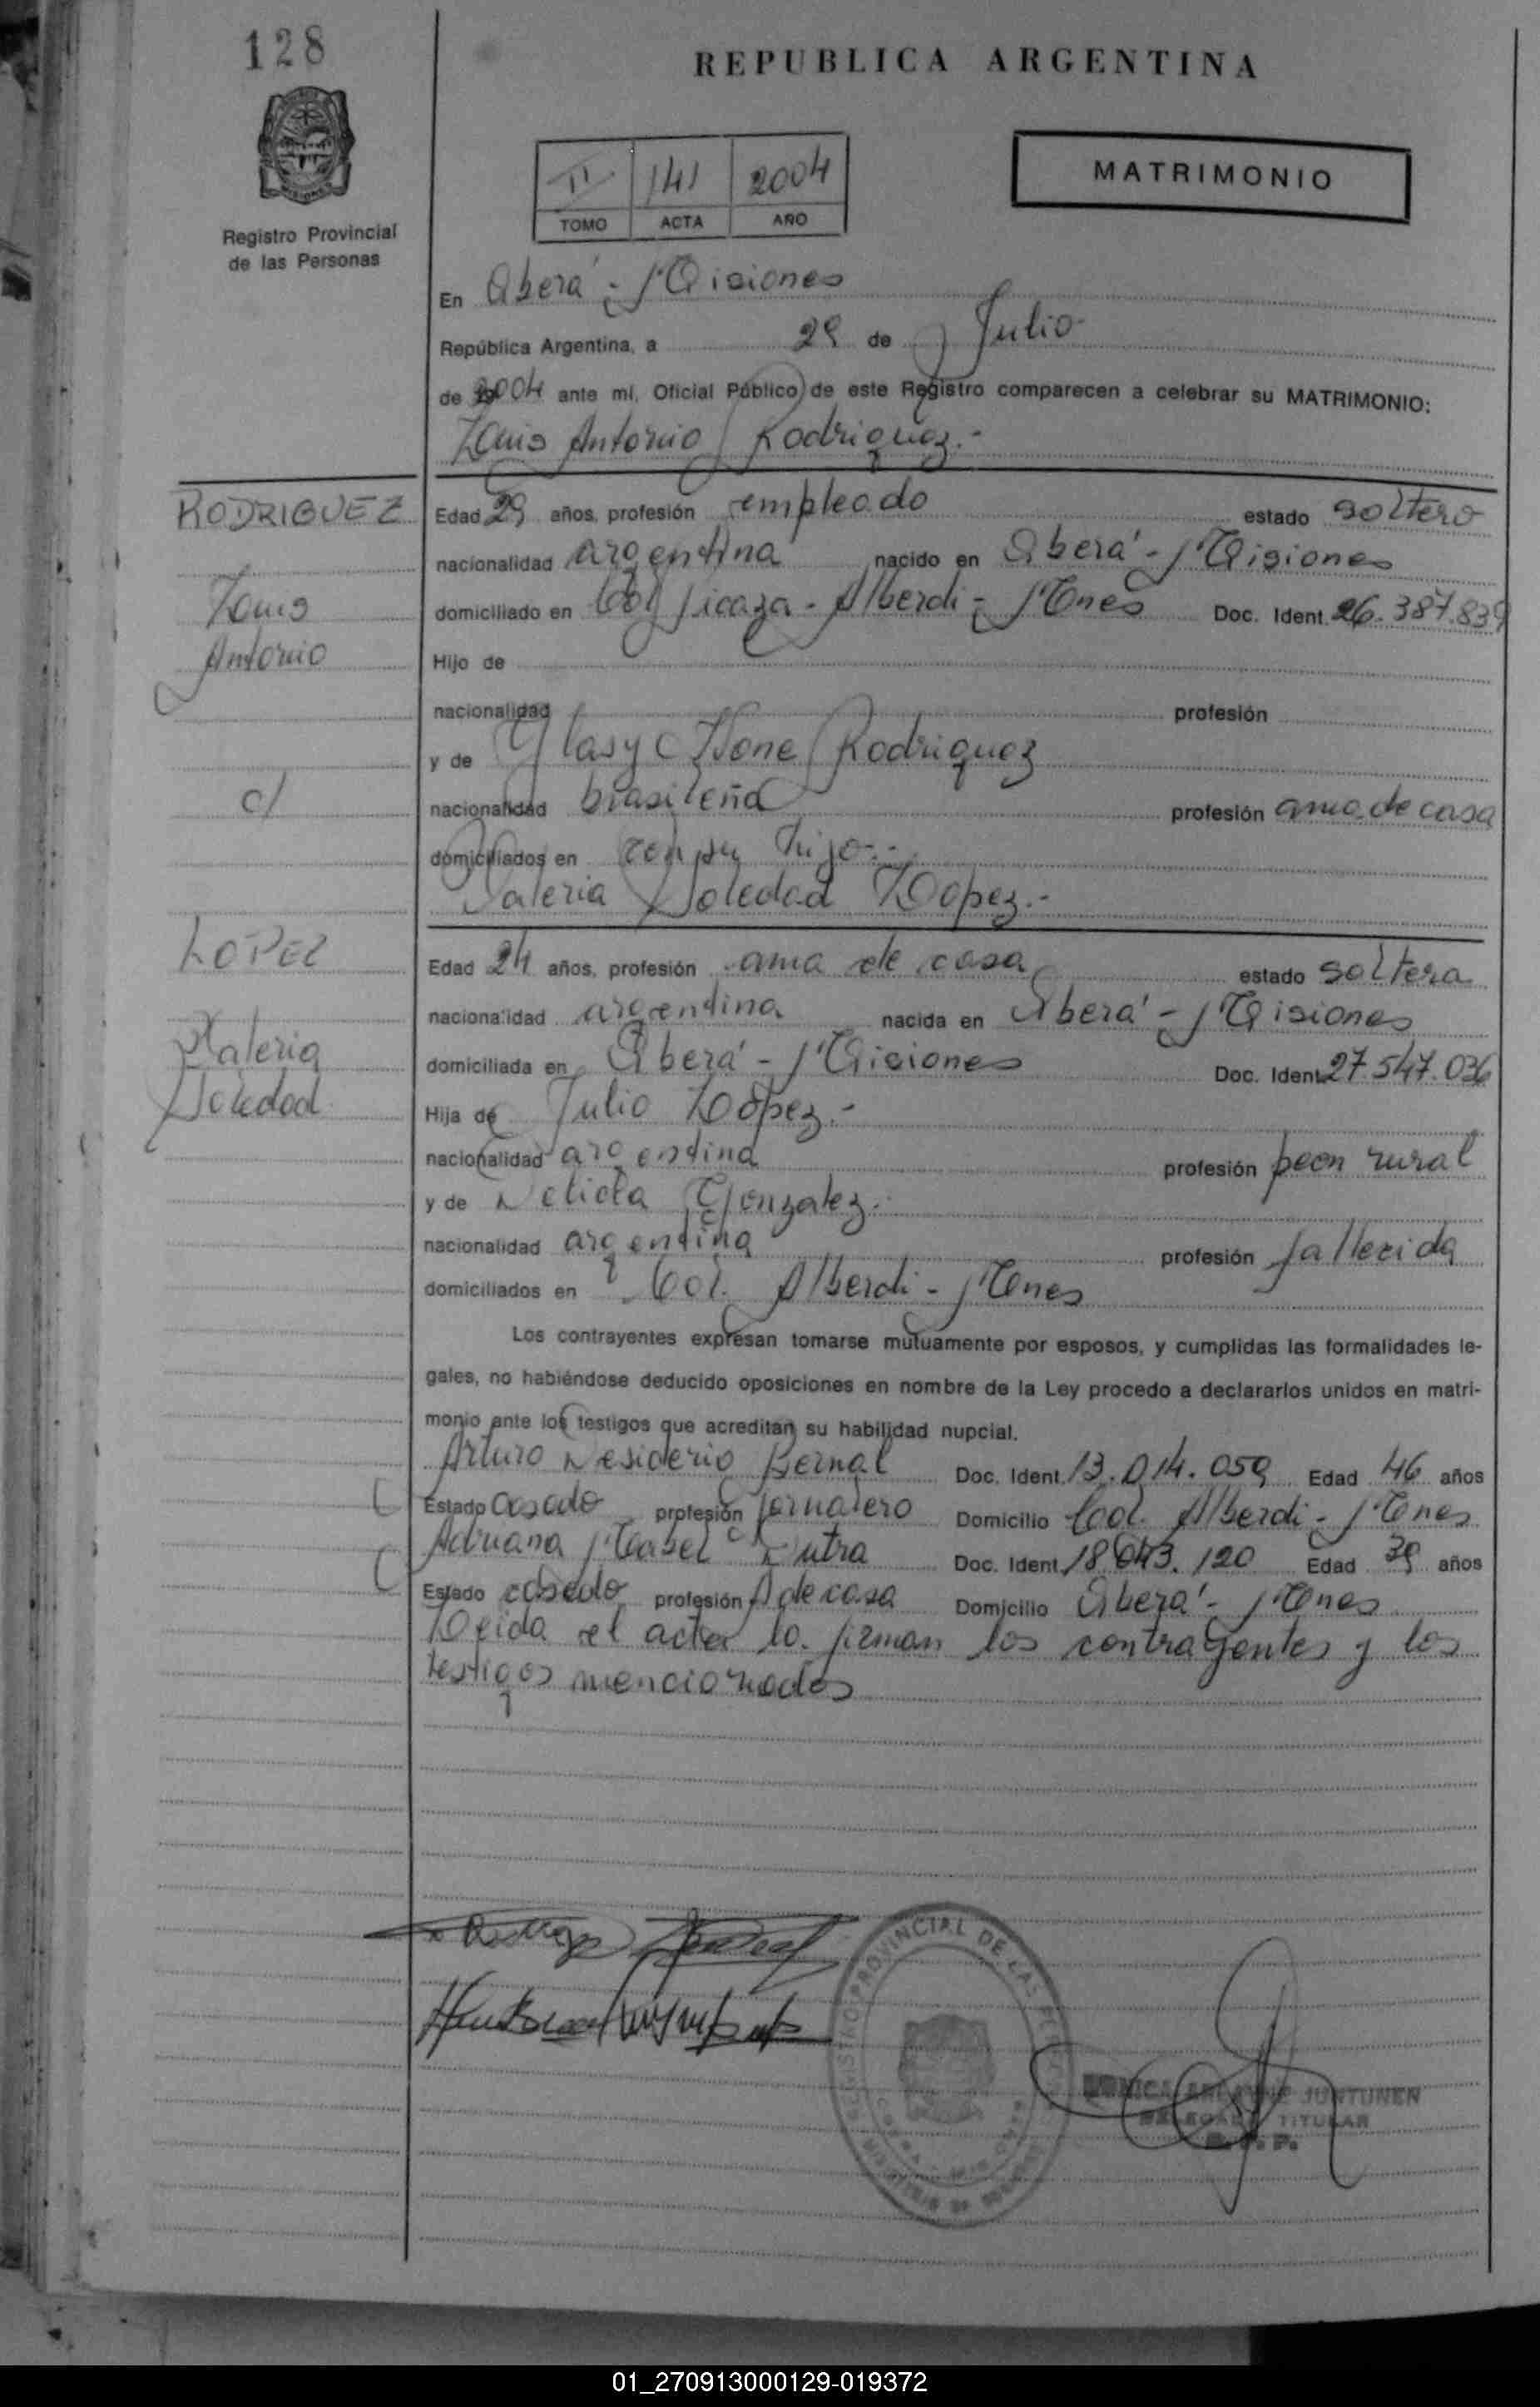 128
REPUBLICA ARGENTINA
MATRIMONIO
II 141 2004
TOMO ACTA AÑO
Registro Provincial
de las Personas
En Oberá - Misiones
República Argentina, a 29 de Julio
de 2004 ante mi, Oficial Público de este Registro comparecen a celebrar su MATRIMONIO:
Luis Antonio Rodriguez.-
RODRIGUEZ
Luis
Antonio
c/
LOPEZ
Valeria
Soledad
Edad 29 años, profesión empleado estado soltero
nacionalidad argentina nacido en Oberá - Misiones
domiciliado en Col Picaza - Alberdi - Mnes Doc. Ident. 26.387.839
Hijo de
nacionalidad profesión
y de Ylasy Ivone Rodriguez
nacionalidad brasileña profesión ama de casa
domiciliados en con su hijo.-
Valeria Soledad Lopez.-
Edad 24 años, profesión ama de casa estado soltera
nacionalidad argentina nacida en Oberá - Misiones
domiciliada en Oberá - Misiones Doc. Ident. 27.547.036
Hija de Julio Lopez.-
nacionalidad argentina profesión peon rural
y de Delicia Gonzalez.-
nacionalidad argentina profesión fallecida
domiciliados en Col. Alberdi - Mnes
Los contrayentes expresan tomarse mutuamente por esposos, y cumplidas las formalidades le-
gales, no habiéndose deducido oposiciones en nombre de la Ley procedo a declararlos unidos en matri-
monio ante los testigos que acreditan su habilidad nupcial.
Arturo Desiderio Bernal Doc. Ident. 13.014.059 Edad 46 años
Estado Casado profesión jornalero Domicilio Col. Alberdi - Mnes
Adriana Mabel Dutra Doc. Ident. 18.043.120 Edad 39 años
Estado casado profesión A de casa Domicilio Oberá - Mnes
Leida el acta lo firman los contrayentes y los
testigos mencionados
PROVINCIAL DE LAS
JUNTUNEN
DELEGADA TITULAR
R.P.P.
01_270913000129-019372